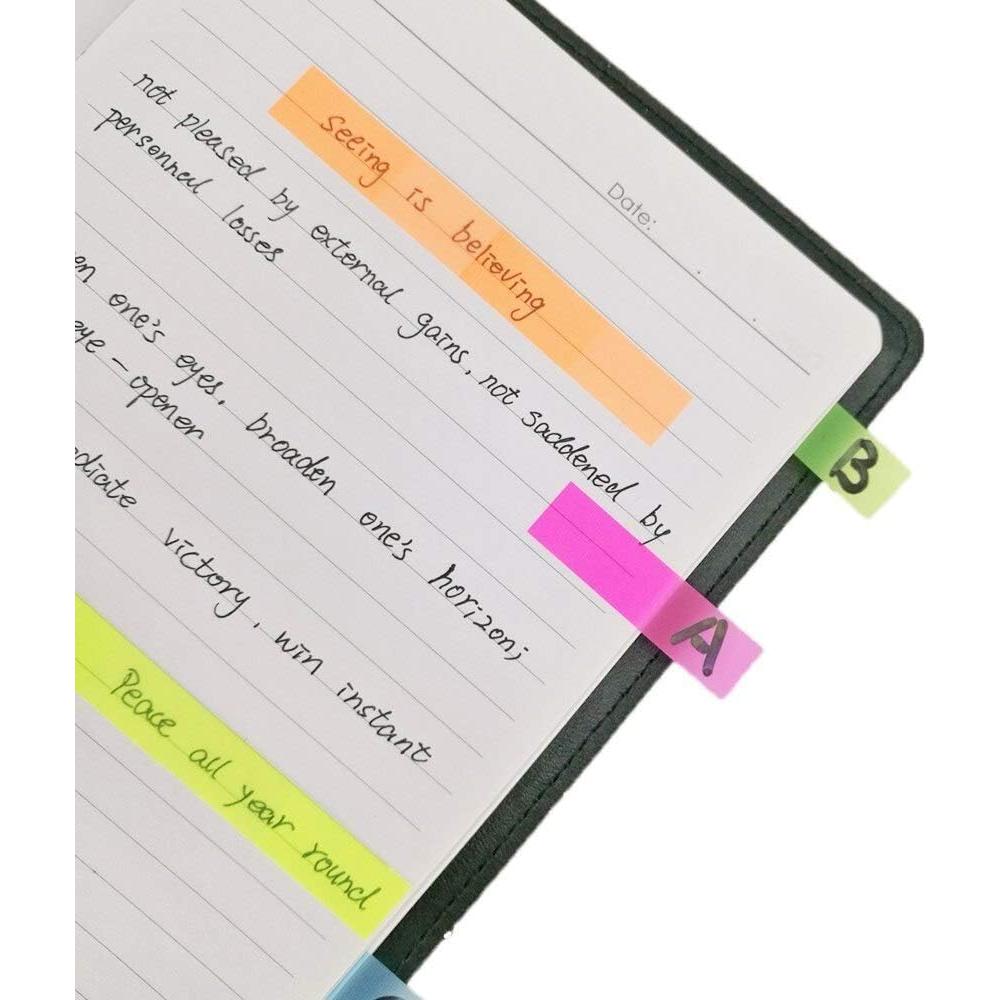 Date:
seeing is believing
not pleased by external gains, not saddened by
personnal losses
en one's eyes, broaden one's horizon;
eye-opener
diate victory, win instant
Peace all year round
B
A